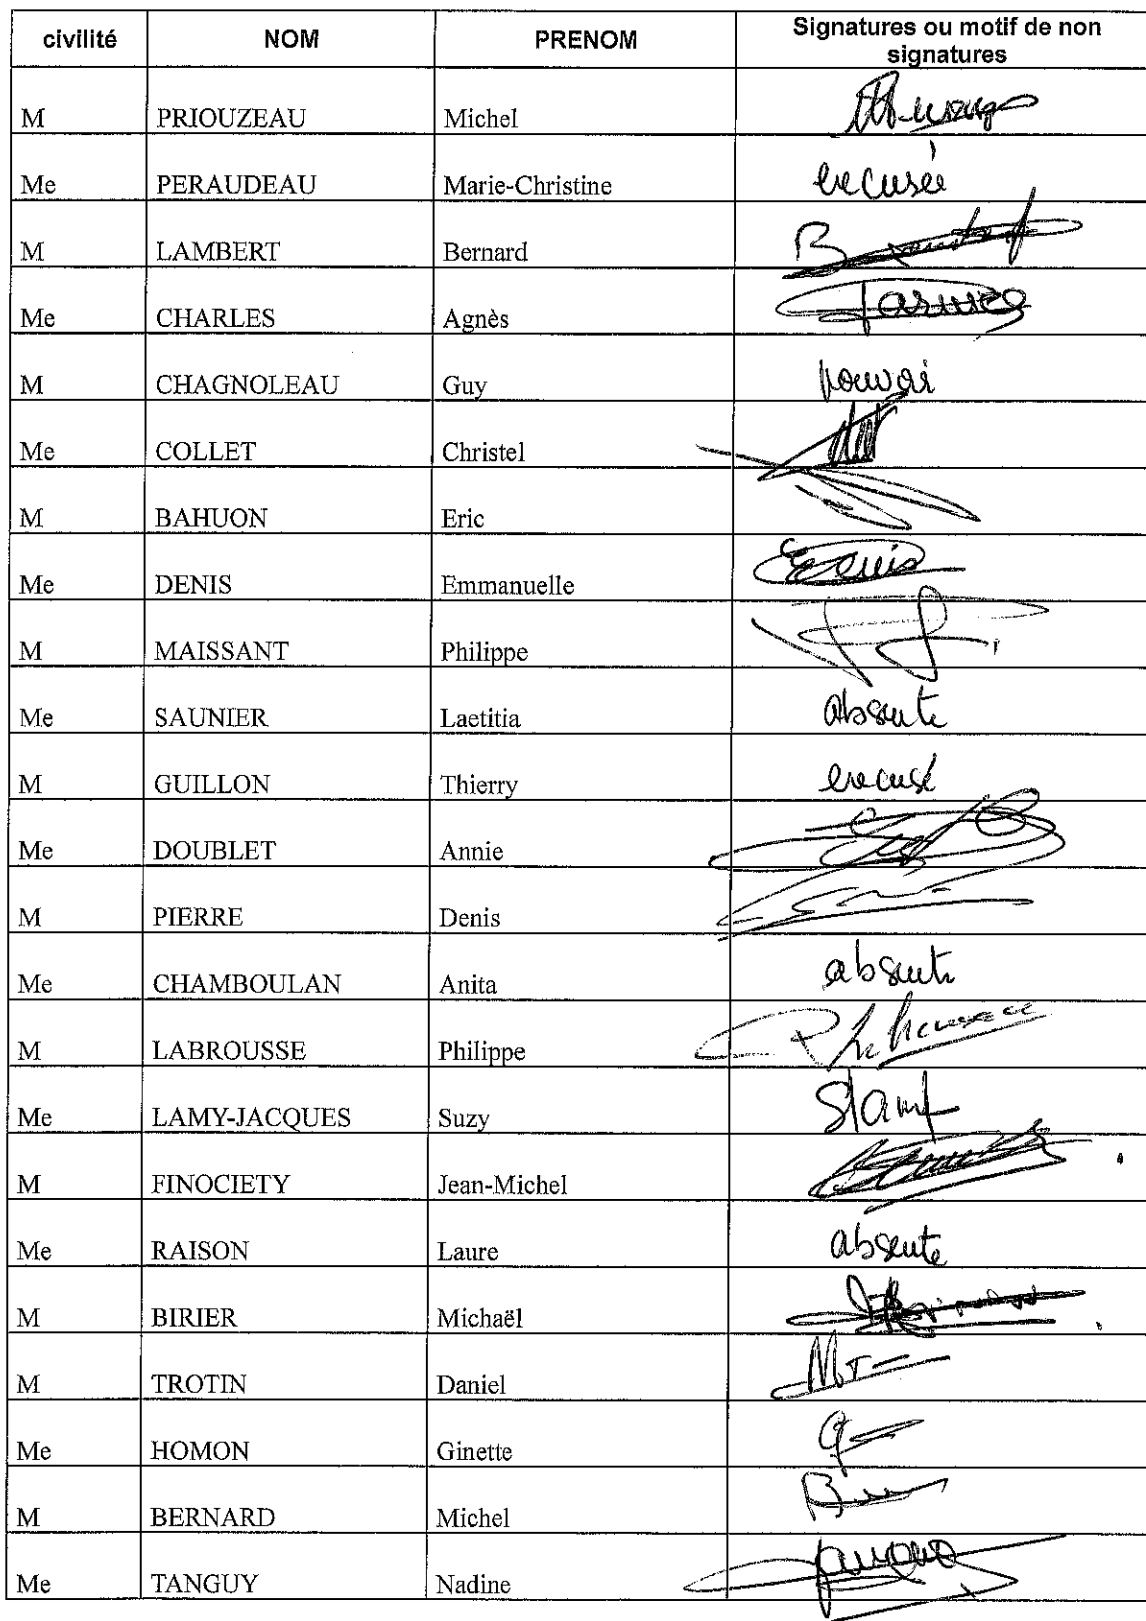 civilité NOM PRENOM Signatures ou motif de non
signatures
M PRIOUZEAU Michel
Me PERAUDEAU Marie-Christine excusée
M LAMBERT Bernard
Me CHARLES Agnès
M CHAGNOLEAU Guy pouvoir
Me COLLET Christel
M BAHUON Eric
Me DENIS Emmanuelle
M MAISSANT Philippe
Me SAUNIER Laetitia absente
M GUILLON Thierry excusé
Me DOUBLET Annie
M PIERRE Denis
Me CHAMBOULAN Anita absente
M LABROUSSE Philippe
Me LAMY-JACQUES Suzy
M FINOCIETY Jean-Michel
Me RAISON Laure absente
M BIRIER Michaël
M TROTIN Daniel
Me HOMON Ginette
M BERNARD Michel
Me TANGUY Nadine